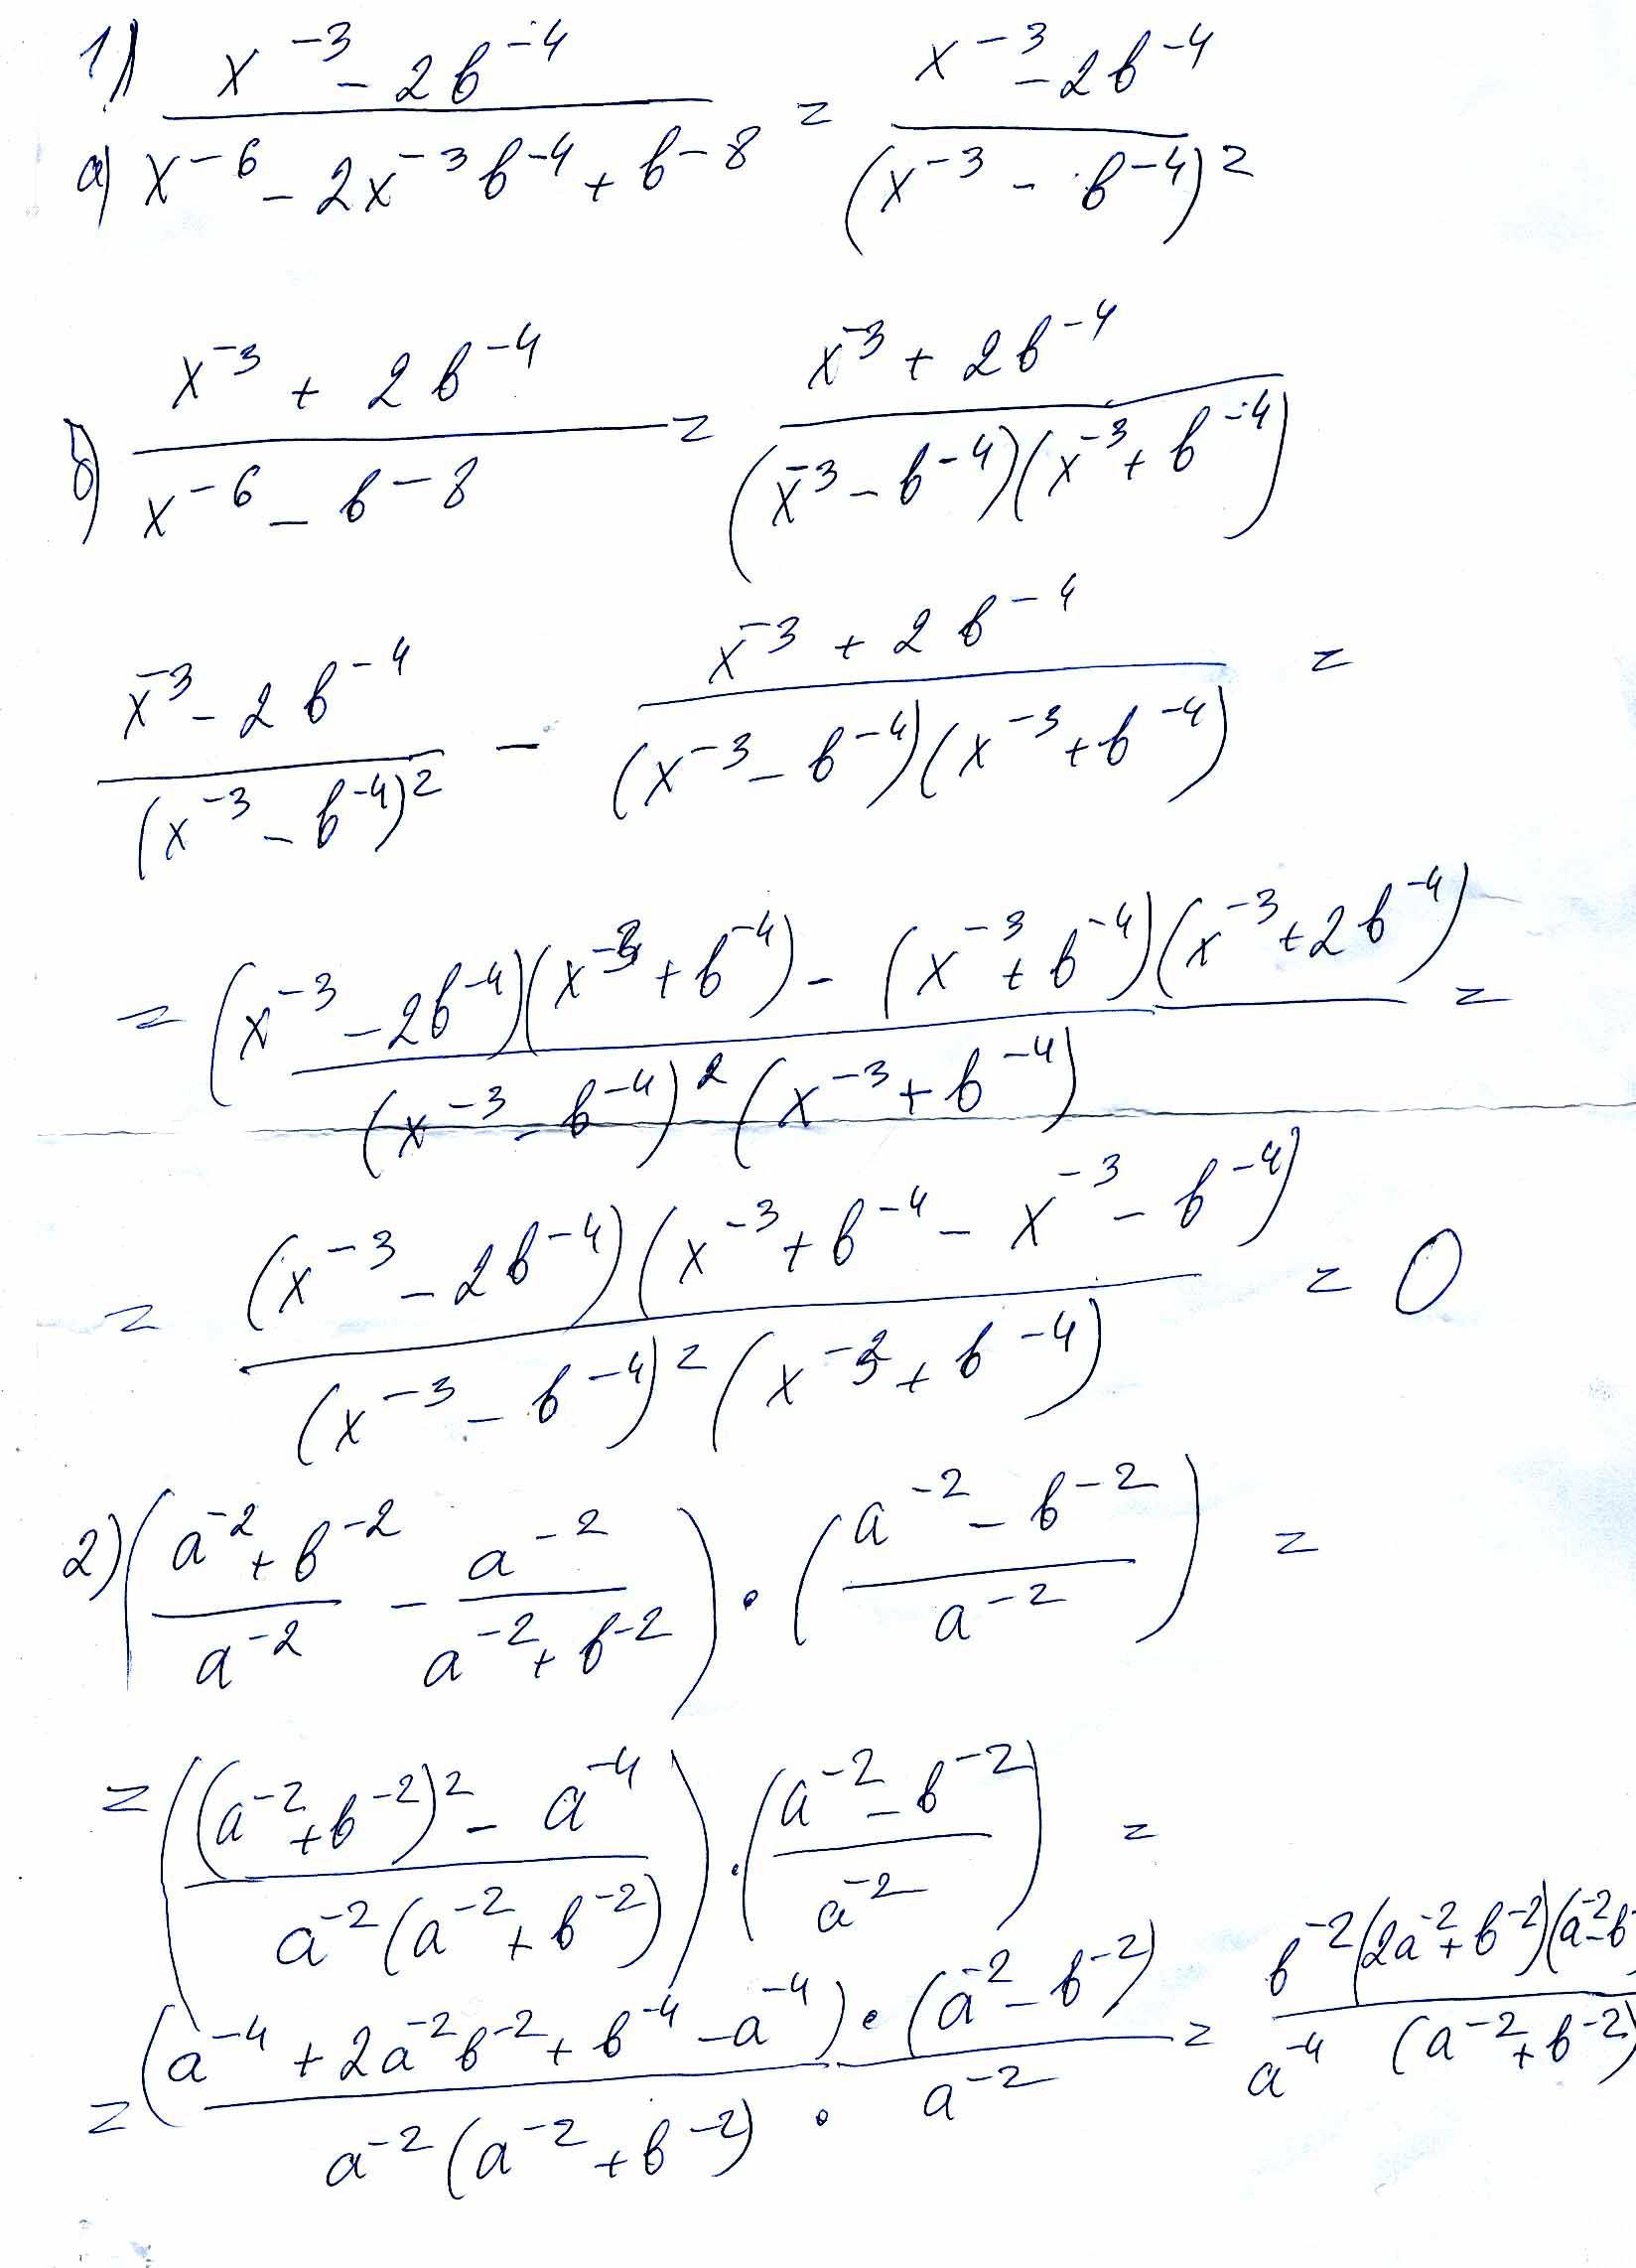 1) (x⁻³ - 2b⁻⁴)/
a) (x⁻⁶ - 2x⁻³b⁻⁴ + b⁻⁸) = (x⁻³ - 2b⁻⁴)/(x⁻³ - b⁻⁴)²
б) (x⁻³ + 2b⁻⁴)/(x⁻⁶ - b⁻⁸) = (x⁻³ + 2b⁻⁴)/((x⁻³ - b⁻⁴)(x⁻³ + b⁻⁴))
(x⁻³ - 2b⁻⁴)/(x⁻³ - b⁻⁴)² - (x⁻³ + 2b⁻⁴)/((x⁻³ - b⁻⁴)(x⁻³ + b⁻⁴)) =
= ((x⁻³ - 2b⁻⁴)(x⁻³ + b⁻⁴) - (x⁻³ + b⁻⁴)(x⁻³ + 2b⁻⁴))/((x⁻³ - b⁻⁴)²(x⁻³ + b⁻⁴)) =
= ((x⁻³ - 2b⁻⁴)(x⁻³ + b⁻⁴ - x⁻³ - b⁻⁴))/((x⁻³ - b⁻⁴)²(x⁻³ + b⁻⁴)) = 0
2) ((a⁻² + b⁻²)/a⁻² - a⁻²/(a⁻² + b⁻²)) · ((a⁻² - b⁻²)/a⁻²) =
= (((a⁻² + b⁻²)² - a⁻⁴)/(a⁻²(a⁻² + b⁻²))) · ((a⁻² - b⁻²)/a⁻²) =
= ((a⁻⁴ + 2a⁻²b⁻² + b⁻⁴ - a⁻⁴) · (a⁻² - b⁻²))/(a⁻²(a⁻² + b⁻²) · a⁻²) = (b⁻²(2a⁻² + b⁻²)(a⁻² - b⁻)/(a⁻⁴ (a⁻² + b⁻²))